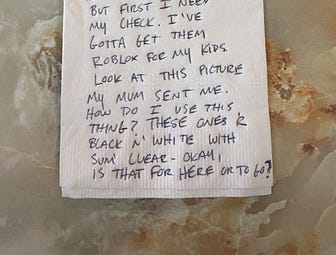 BUT FIRST I NEED
MY CHECK. I'VE
GOTTA GET THEM
ROBLOX FOR MY KIDS.
LOOK AT THIS PICTURE
MY MUM SENT ME.
HOW DO I USE THIS
THING? THESE ONES R
BLACK N' WHITE WITH
SUM' CLEAR - OKAY,
IS THAT FOR HERE OR TO GO?